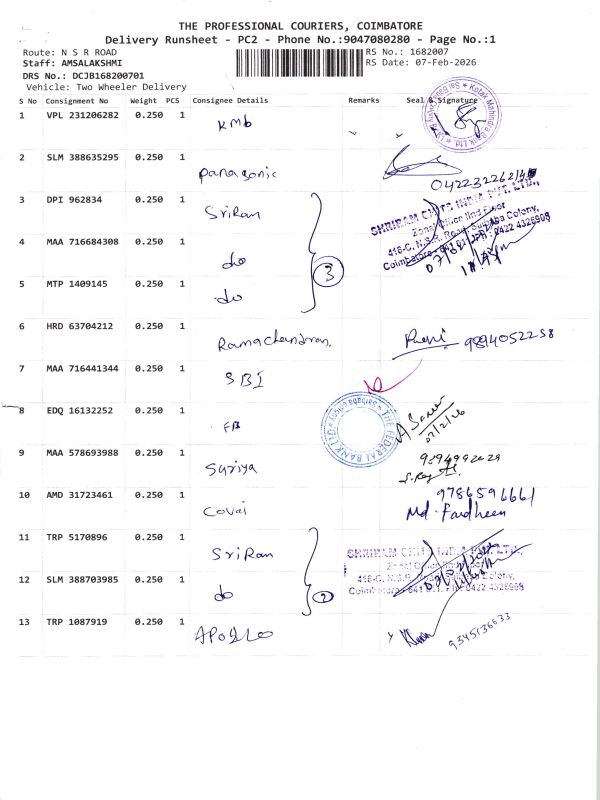 THE PROFESSIONAL COURIERS, COIMBATORE
Delivery Runsheet - PC2 - Phone No.:9047080280 - Page No.:1
Route: N S R ROAD
RS No.: 1682007
Staff: AMSALAKSHMI
RS Date: 07-Feb-2026
DRS No.: DCJB168200701
Vehicle: Two Wheeler Delivery
S No Consignment No Weight PCS Consignee Details Remarks Seal & Signature
1 VPL 231206282 0.250 1 Kmb
Kotak Mahindra Bank Ltd
2 SLM 388635295 0.250 1 Panasonic
3 DPI 962834 0.250 1 SriRam
SHRIRAM CHITS INDIA PVT. LTD.,
Zonal Office IInd Floor
416-C, N.S.R. Road, Saibaba Colony,
Coimbatore - 641 011. Ph: 0422 4326908
4 MAA 716684308 0.250 1 do
3
5 MTP 1409145 0.250 1 do
6 HRD 63704212 0.250 1 Ramachandran. 9894052258
7 MAA 716441344 0.250 1 SBI
8 EDQ 16132252 0.250 1 FB
THE FEDERAL BANK LTD * Saibaba Colony *
07/2/26
9 MAA 578693988 0.250 1 Suriya
10 AMD 31723461 0.250 1 Covai
9786596661
Md. Fardheen
11 TRP 5170896 0.250 1 SriRam
SHRIRAM CHITS INDIA PVT. LTD.,
Zonal Office IInd Floor
416-C, N.S.R. Road, Saibaba Colony,
Coimbatore - 641 011. Ph: 0422 4326908
12 SLM 388703985 0.250 1 do
2
13 TRP 1087919 0.250 1 APollo
9345136633